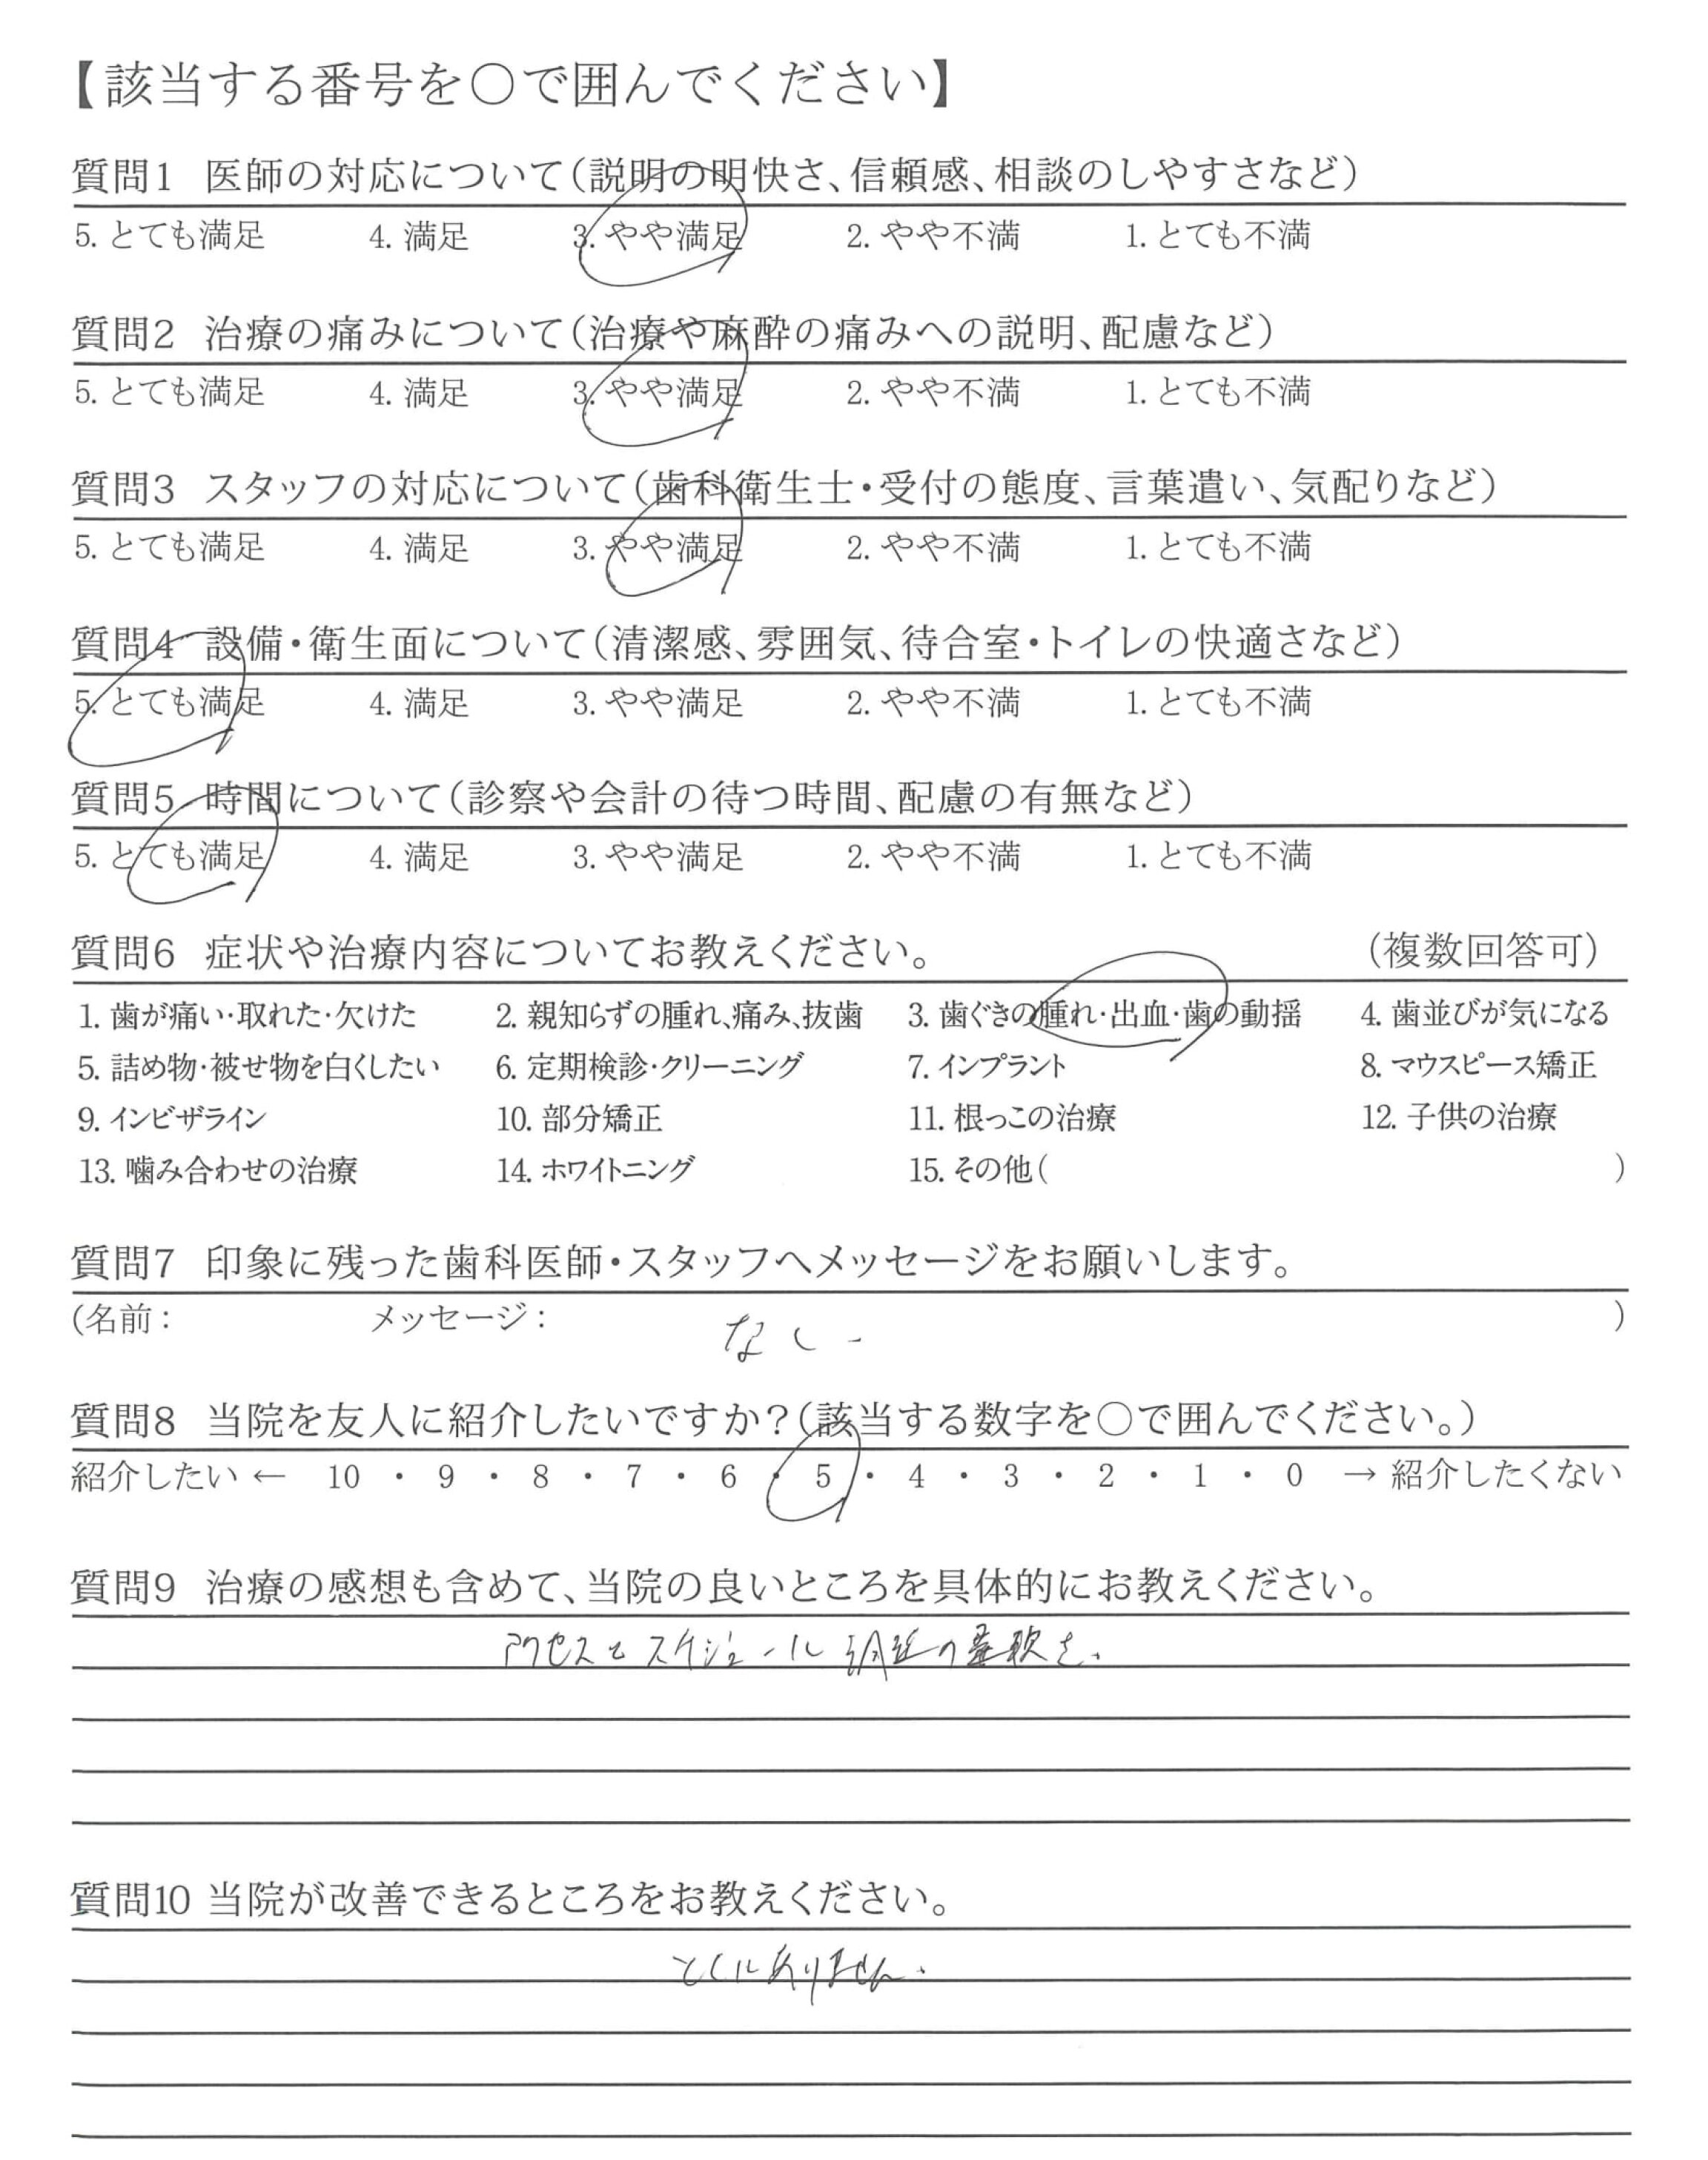 【該当する番号を○で囲んでください】
質問1 医師の対応について(説明の明快さ、信頼感、相談のしやすさなど)
5. とても満足 4. 満足 3. やや満足 2. やや不満 1. とても不満
質問2 治療の痛みについて(治療や麻酔の痛みへの説明、配慮など)
5. とても満足 4. 満足 3. やや満足 2. やや不満 1. とても不満
質問3 スタッフの対応について(歯科衛生士・受付の態度、言葉遣い、気配りなど)
5. とても満足 4. 満足 3. やや満足 2. やや不満 1. とても不満
質問4 設備・衛生面について(清潔感、雰囲気、待合室・トイレの快適さなど)
5. とても満足 4. 満足 3. やや満足 2. やや不満 1. とても不満
質問5 時間について(診察や会計の待つ時間、配慮の有無など)
5. とても満足 4. 満足 3. やや満足 2. やや不満 1. とても不満
質問6 症状や治療内容についてお教えください。 (複数回答可)
1. 歯が痛い・取れた・欠けた 2. 親知らずの腫れ、痛み、抜歯 3. 歯ぐきの腫れ・出血・歯の動揺 4. 歯並びが気になる
5. 詰め物・被せ物を白くしたい 6. 定期検診・クリーニング 7. インプラント 8. マウスピース矯正
9. インビザライン 10. 部分矯正 11. 根っこの治療 12. 子供の治療
13. 噛み合わせの治療 14. ホワイトニング 15. その他( )
質問7 印象に残った歯科医師・スタッフへメッセージをお願いします。
(名前: メッセージ: なし )
質問8 当院を友人に紹介したいですか?(該当する数字を○で囲んでください。)
紹介したい ← 10 ・ 9 ・ 8 ・ 7 ・ 6 ・ 5 ・ 4 ・ 3 ・ 2 ・ 1 ・ 0 → 紹介したくない
質問9 治療の感想も含めて、当院の良いところを具体的にお教えください。
アクセスとスケジュール調整の柔軟さ.
質問10 当院が改善できるところをお教えください。
とくにありません.